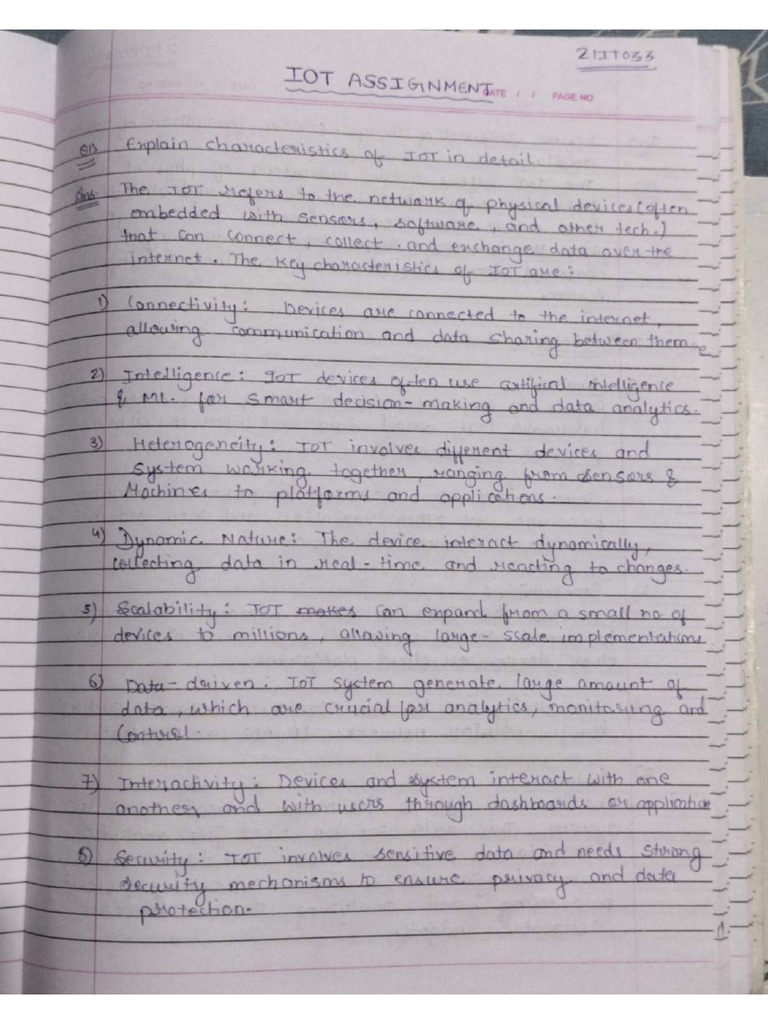 21IT033
IOT ASSIGNMENT
DATE / / PAGE NO
Q1. Explain characteristics of IOT in detail.
Ans. The IOT refers to the network of physical devices (often
embedded with sensors, software, and other tech.)
that can connect, collect and exchange data over the
internet. The key characteristics of IOT are:
1) Connectivity: Devices are connected to the internet,
allowing communication and data sharing between them.
2) Intelligence: IOT devices often use artifical intelligence
& ML. for smart decision-making and data analytics.
3) Heterogeneity: IOT involves different devices and
system working together, ranging from sensors &
Machines to platforms and applications.
4) Dynamic Nature: The device interact dynamically,
collecting data in real-time and reacting to changes.
5) Scalability: IOT makes can expand from a small no. of
devices to millions, allowing large-scale implementations
6) Data-driven: IOT system generate large amount of
data, which are crucial for analytics, monitoring and
Control.
7) Interactivity: Devices and system interact with one
another and with users through dashboards or application
8) Security: IOT involves sensitive data and needs strong
security mechanisms to ensure privacy and data
protection.
1